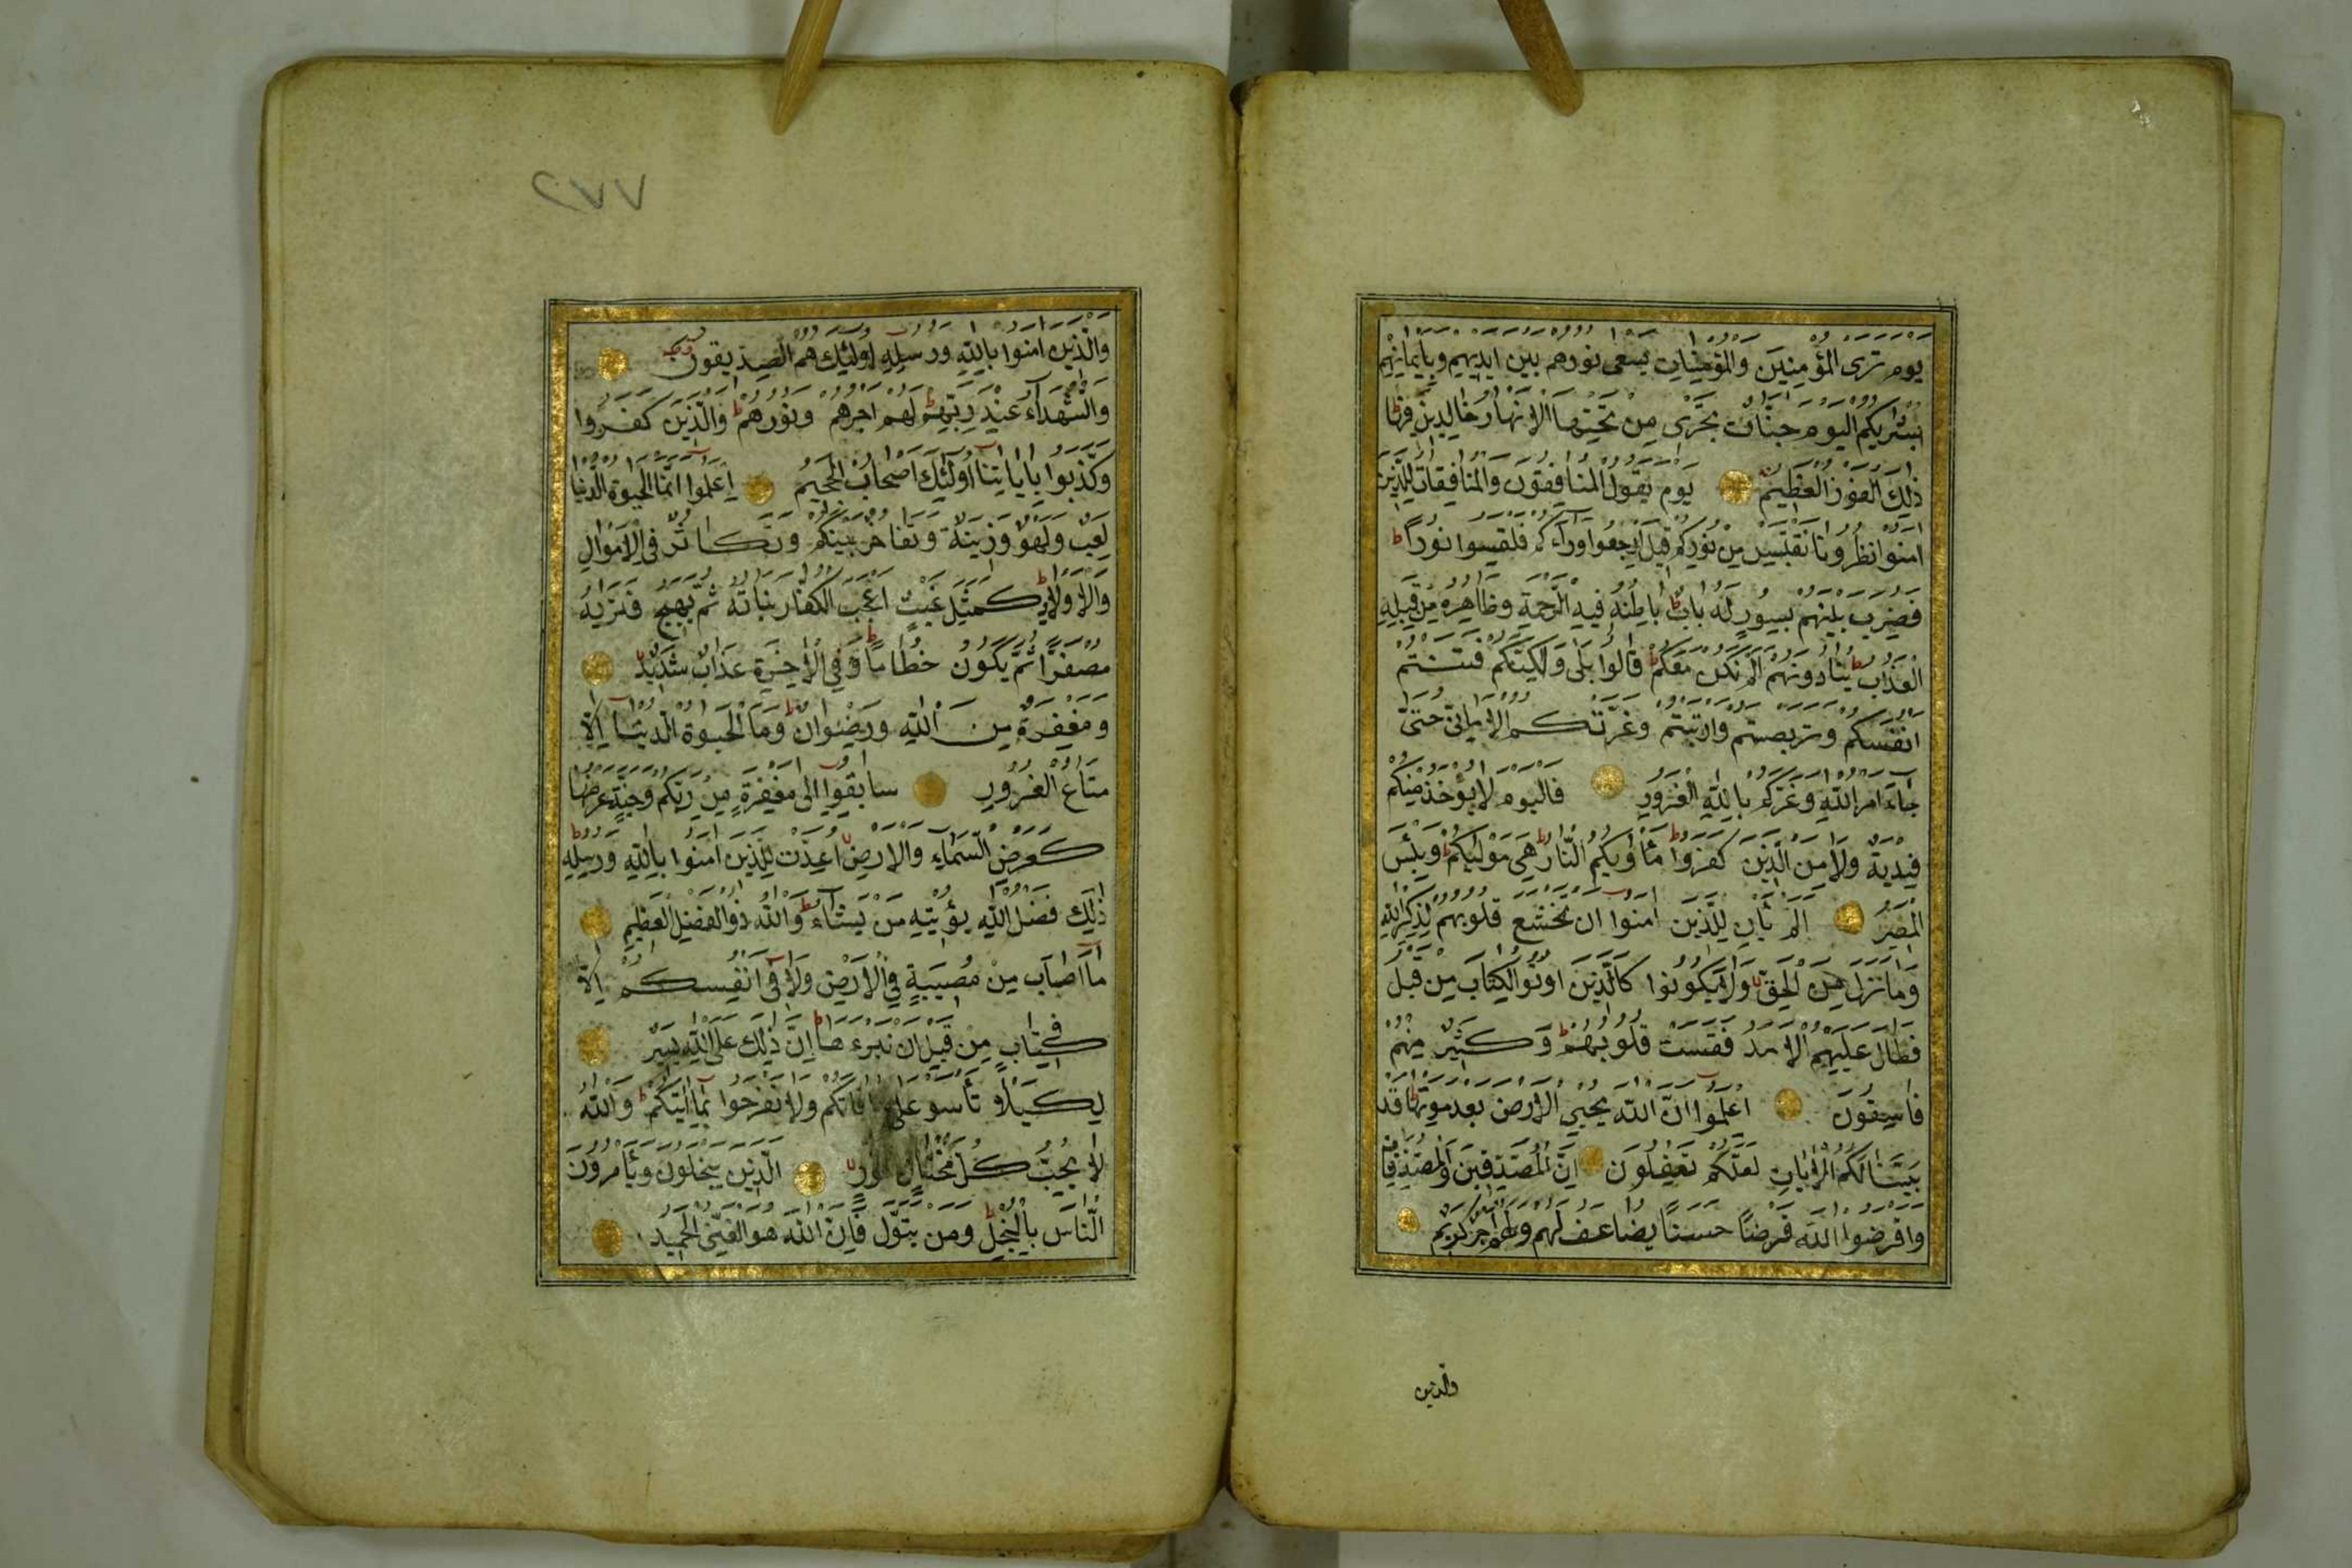 يوم ترى المؤمنين والمؤمنات يسعى نورهم بين ايديهم وبايمانهم
بشريكم اليوم جنات تجرى من تحتها الانهار خالدين فيها
ذلك الفوز العظيم يوم يقول المنافقون والمنافقات للذين
امنوا انظرونا نقتبس من نوركم قيل ارجعوا وراءكم فلتمسوا نورا
فضرب بينهم بسور له باب باطنه فيه الرحمة وظاهره من قبله
العذاب ينادونهم الم نكن معكم قالوا بلى ولكنكم فتنتم
انفسكم وتربصتم وارتبتم وغرتكم الامانى حتى
جاء امر الله وغركم بالله الغرور فاليوم لا يؤخذ منكم
فدية ولا من الذين كفروا مأويكم النار هى موليكم وبئس
المصير الم يأن للذين امنوا ان تخشع قلوبهم لذكر الله
وما نزل من الحق ولا يكونوا كالذين اوتوا الكتاب من قبل
فطال عليهم الامد فقست قلوبهم وكثير منهم
فاسقون اعلموا ان الله يحيي الارض بعد موتها قد
بينا لكم الايات لعلكم تعقلون ان المصدقين والمصدقات
واقرضوا الله قرضا حسنا يضاعف لهم ولهم اجر كريم
والذين
٢٧٧
والذين امنوا بالله ورسله اولئك هم الصديقون
والشهداء عند ربهم لهم اجرهم ونورهم والذين كفروا
وكذبوا باياتنا اولئك اصحاب الجحيم اعلموا انما الحيوة الدنيا
لعب ولهو وزينة وتفاخر بينكم وتكاثر فى الاموال
والاولاد كمثل غيث اعجب الكفار نباته ثم يهيج فتريه
مصفرا ثم يكون حطاما وفي الاخرة عذاب شديد
ومغفرة من الله ورضوان وما الحيوة الدنيا الا
متاع الغرور سابقوا الى مغفرة من ربكم وجنة عرضها
كعرض السماء والارض اعدت للذين امنوا بالله ورسله
ذلك فضل الله يؤتيه من يشاء والله ذو الفضل العظيم
ما اصاب من مصيبة في الارض ولا فى انفسكم الا
في كتاب من قبل ان نبرءها ان ذلك على الله يسير
لكيلا تأسو على ما فاتكم ولا تفرحوا بما اتيكم والله
لا يحب كل مختال فخور الذين يبخلون ويأمرون
الناس بالبخل ومن يتول فان الله هو الغنى الحميد